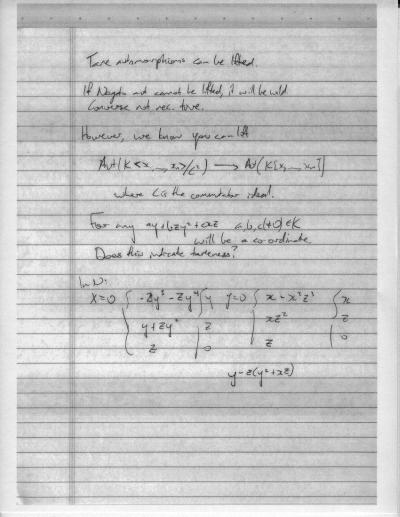 Tame automorphisms can be lifted.
If Nagata aut cannot be lifted, it will be wild
Converse not nec. true.
However, we know you can lift
Aut(K<x, ..., xn>/C²) → Aut(K[x, ..., xn])
where C is the commutator ideal.
For any ay+bzy²+cxz a,b,c(≠0)∈K
will be a co-ordinate.
Does this indicate tameness?
In N:
X=0 { -2y³ - zy⁴ { y y=0 { x - x²z³ { x
y+zy² z xz² z
z 0 z 0
y-z(y²+xz)